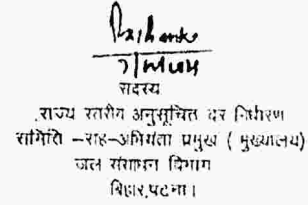 सदस्य
राज्य स्तरीय अनुसूचित दर निर्धारण
समिति -सह-अभियंता प्रमुख ( मुख्यालय)
जल संसाधन विभाग
बिहार,पटना।